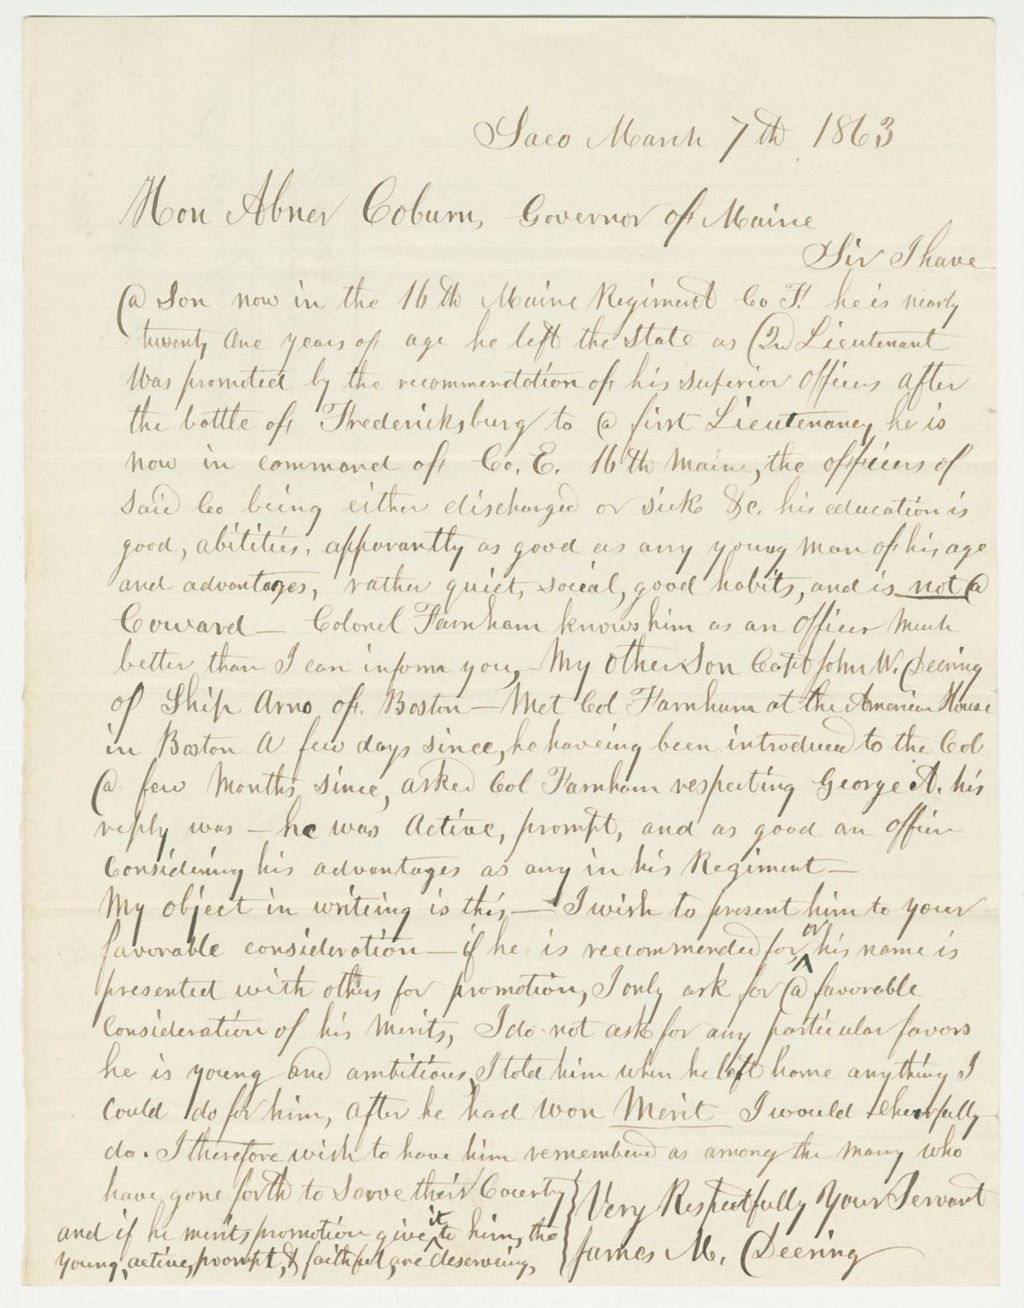 Saco March 7th 1863
Hon Abner Coburn, Governor of Maine
Sir I have
a Son now in the 16th Maine Regiment Co F. he is nearly
twenty one years of age he left the State as 2d Lieutenant
Was promoted by the recommendation of his superior officers after
the battle of Fredericksburg to a first Lieutenancy he is
now in command of Co. E. 16th Maine, the officers of
said Co being either discharged or sick &c. his education is
good, abilities, apparantly as good as any young man of his age
and advantages, rather quiet, social, good habits, and is not a
Coward — Colonel Farnham knows him as an officer Much
better than I can inform you, — My other Son Capt John W. Deering
of Ship Arno of Boston — Met Col Farnham at the American House
in Boston a few days since, he haveing been introduced to the Col
a few Months since, asked Col Farnham respecting George A. his
reply was — he was Active, prompt, and as good an officer
Considering his advantages as any in his Regiment —
My object in writing is this, — I wish to present him to your
favorable consideration — if he is reccommended for, or his name is
presented with others for promotion, I only ask for a favorable
Consideration of his Merits, I do not ask for any particular favors
he is young and ambitious, I told him when he left home anything I
could do for him, after he had won Merit I would cheerfully
do. I therefore wish to have him remembered as among the many who
have gone forth to Serve their County
and if he merits promotion give it to him, the
young, active, prompt, & faithful, are deserveing,
Very Respectfully Your Servant
James M. Deering